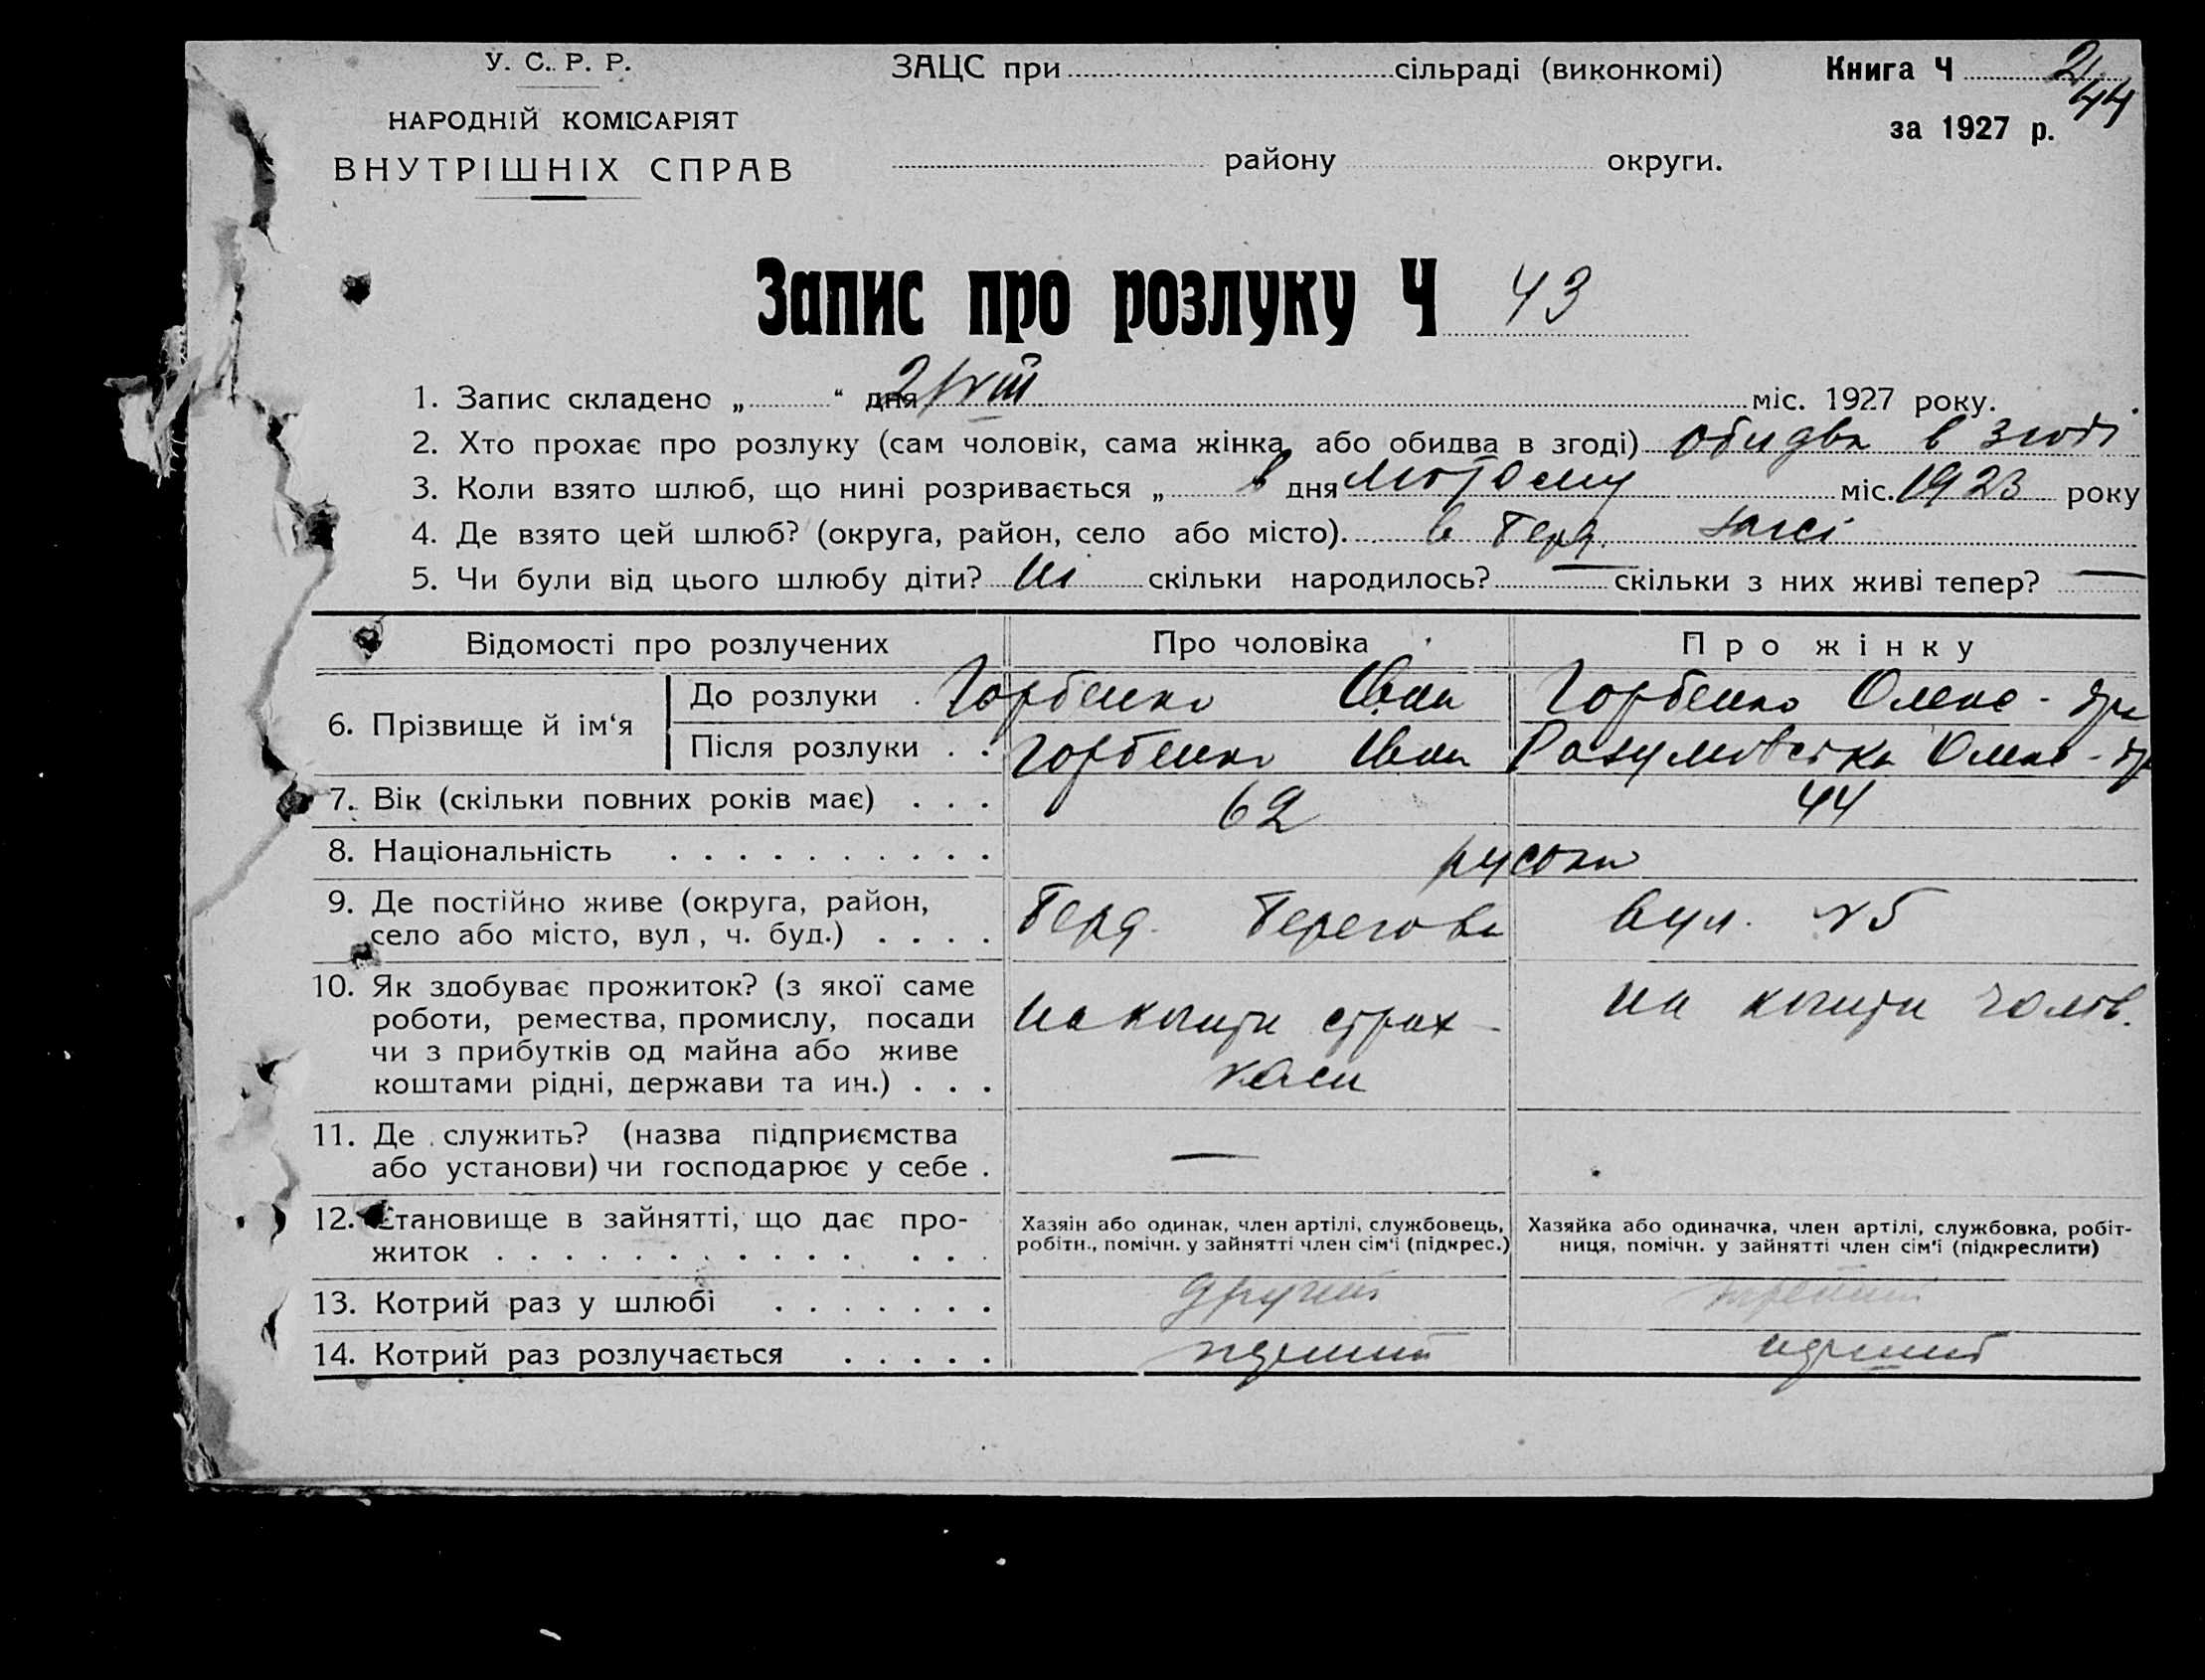 У. С. Р. Р.
НАРОДНІЙ КОМІСАРІЯТ
ВНУТРІШНІХ СПРАВ
ЗАЦС при сільраді (виконкомі)
району округи.
Книга Ч 2/44
за 1927 р.
Запис про розлуку Ч 43
1. Запис складено „ “ дня 2/VIII міс. 1927 року.
2. Хто прохає про розлуку (сам чоловік, сама жінка або обидва в згоді) обидва в згоді
3. Коли взято шлюб, що нині розривається „ в дня лютому міс. 1923 року
4. Де взято цей шлюб? (округа, район, село або місто). в Берд. загсі
5. Чи були від цього шлюбу діти? ні скільки народилось? — скільки з них живі тепер? —
Відомості про розлучених Про чоловіка Про жінку
6. Прізвище й ім‘я
До розлуки . Горбенко Іван Горбенко Олекс-дра
Після розлуки . . Горбенко Іван Разумовська Олекс-др
7. Вік (скільки повних років має) . . . 62 44
8. Національність . . . . . . . . . . руськи
9. Де постійно живе (округа, район,
село або місто, вул, ч. буд.) . . . . Берд. Берегова вул. №5
10. Як здобуває прожиток? (з якої саме
роботи, ремества, промислу, посади
чи з прибутків од майна або живе
коштами рідні, держави та ин.) . . .
на кошти страх-
каси
на кошти чолов.
11. Де служить? (назва підприємства
або установи) чи господарює у себе . —
12. Становище в зайнятті, що дає про-
житок . . . . . . . . . . . . .
Хазяін або одинак, член артілі, службовець,
робітн., помічн. у зайнятті член сім'ї (підкрес.)
Хазяйка або одиначка, член артілі, службовка, робіт-
ниця, помічн. у зайнятті член сім'ї (підкреслити)
13. Котрий раз у шлюбі . . . . . . . другий
14. Котрий раз розлучається . . . . . перший перший